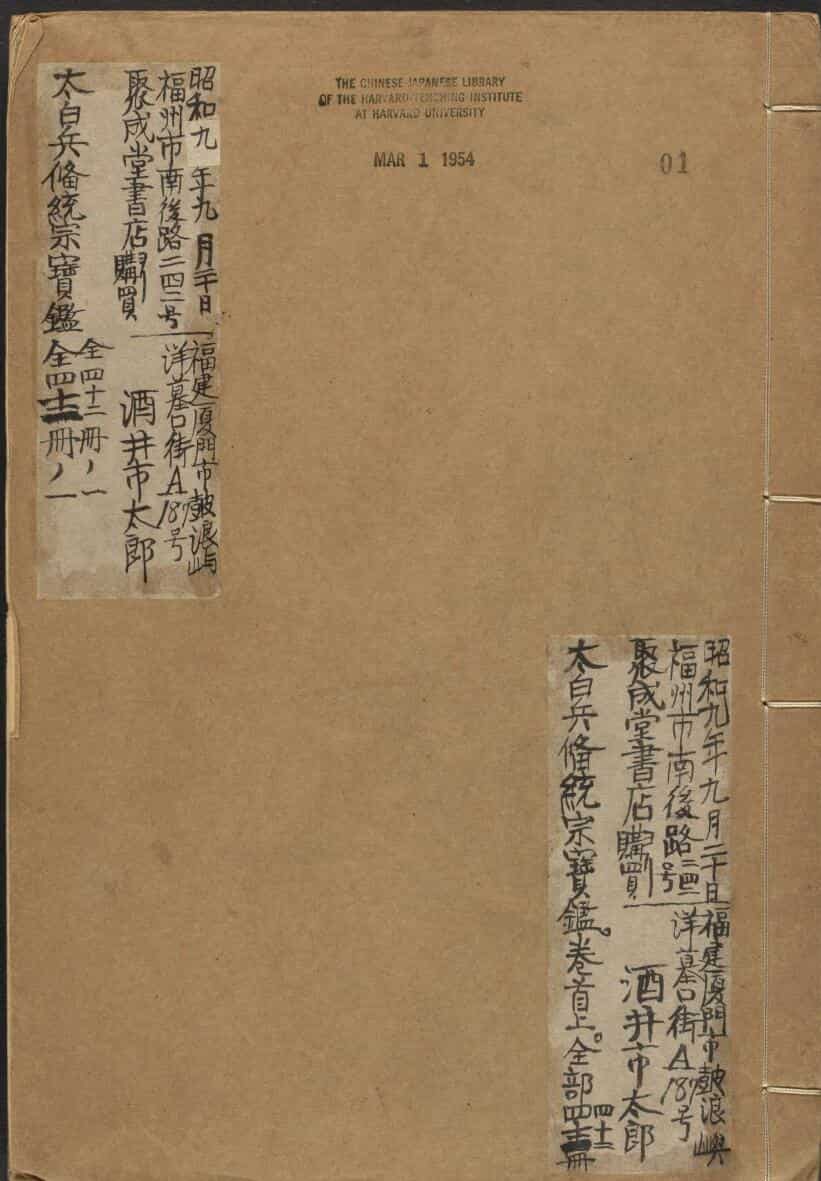 THE CHINESE-JAPANESE LIBRARY
OF THE HARVARD-YENCHING INSTITUTE
AT HARVARD UNIVERSITY
MAR 1 1954
01
昭和九年九月二十日
福州市南後路二四二号
聚成堂書店購買
福建厦門市鼓浪屿
洋墓口街A187号
酒井市太郎
太白兵備統宗寶鑑
全四十二冊ノ一
昭和九年九月二十日
福州市南後路二四二号
聚成堂書店購買
福建厦門市鼓浪嶼
洋墓口街A187号
酒井市太郎
太白兵備統宗寶鑑。卷首上。全部四十二冊